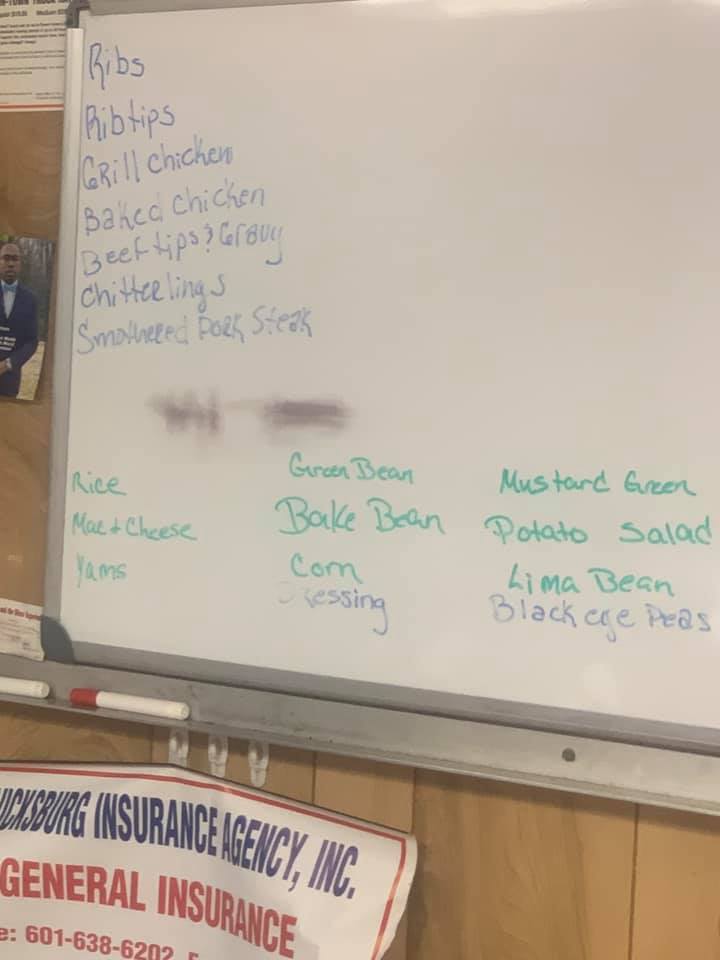 Ribs
Ribtips
Grill Chicken
Baked Chicken
Beef tips & Gravy
Chitterlings
Smothered Pork Steak
Rice
Green Bean
Mustard Green
Mac & Cheese
Bake Bean
Potato Salad
Yams
Corn
Lima Bean
ressing
Black eye Peas
ICKSBURG INSURANCE AGENCY, INC.
GENERAL INSURANCE
e: 601-638-6202